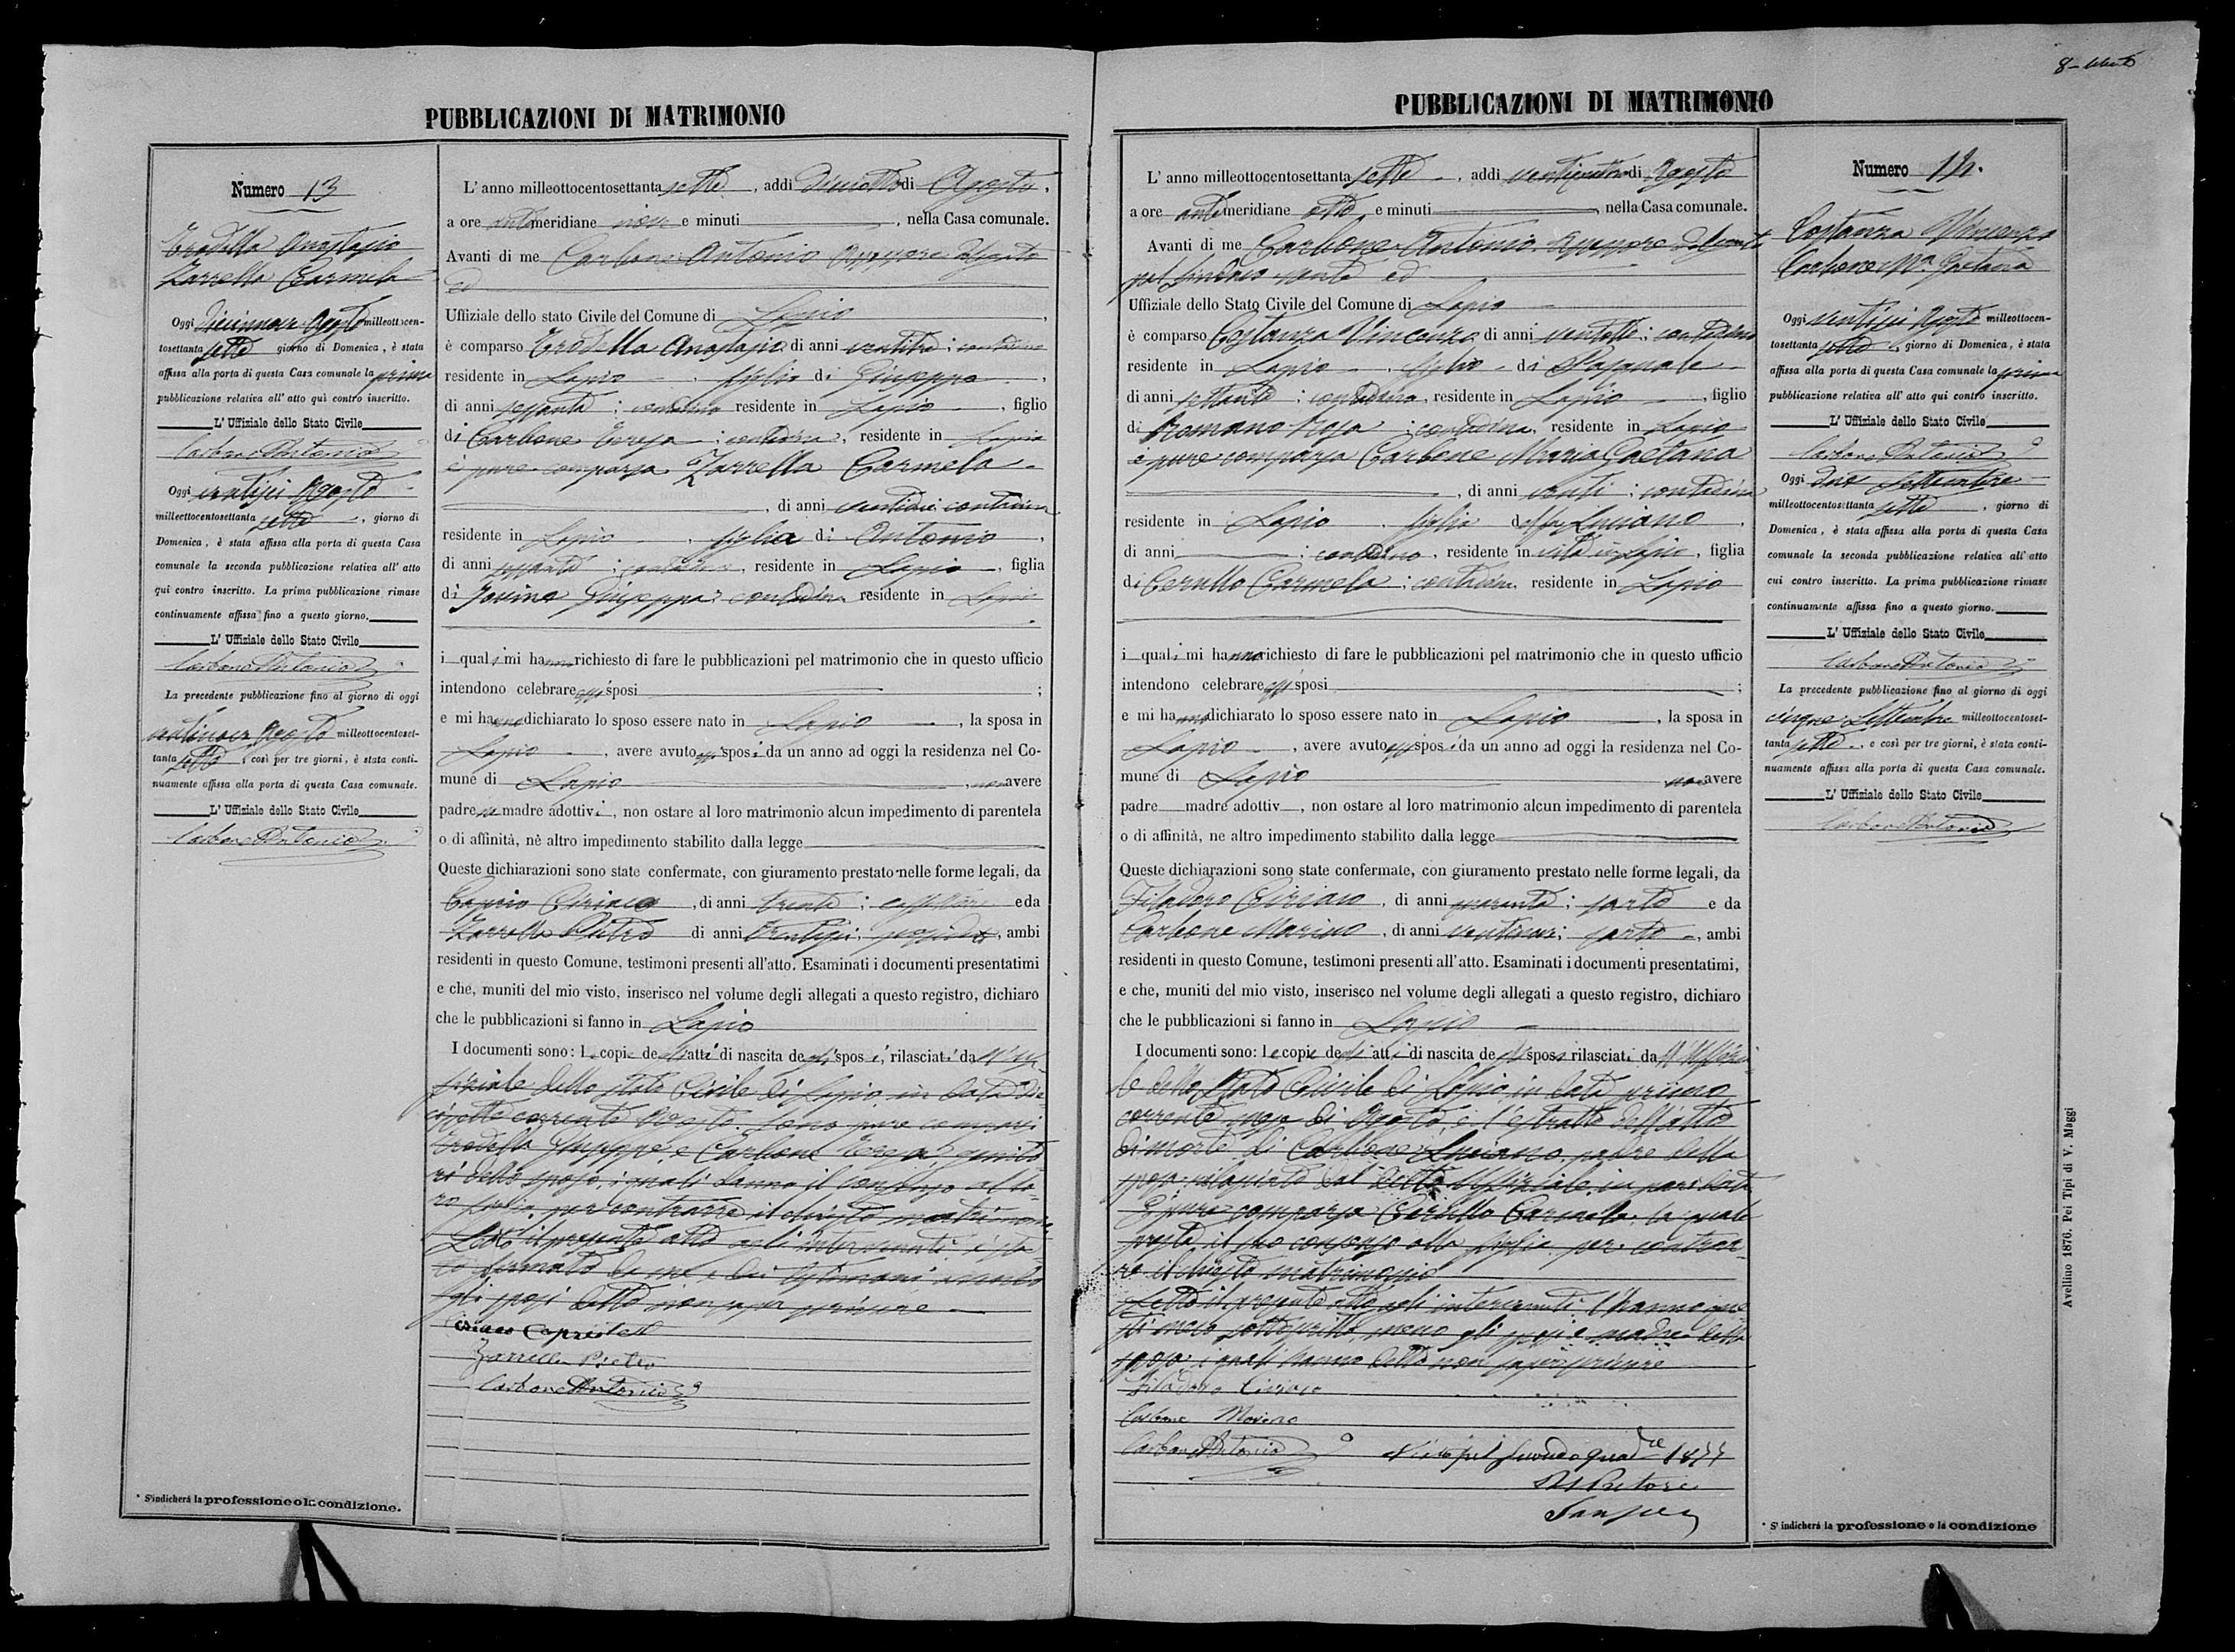 8 -
PUBBLICAZIONI DI MATRIMONIO
Numero 13
Trodella Anastasio
Zarrella Carmela
Oggi diecinnove Agosto milleottocen-
tosettanta sette giorno di Domenica, è stata
affissa alla porta di questa Casa comunale la prima
pubblicazione relativa all' atto quì contro inscritto.
L' Uffiziale dello Stato Civile
Carbone Antonio
Oggi ventisei Agosto
milleottocentosettanta sette, giorno di
Domenica, è stata affissa alla porta di questa Casa
comunale la seconda pubblicazione relativa all' atto
qui contro inscritto. La prima pubblicazione rimase
continuamente affissa fino a questo giorno.
L' Uffiziale dello Stato Civile
Carbone Antonio
La precedente pubblicazione fino al giorno di oggi
ventinove Agosto milleottocentoset-
tanta sette, così per tre giorni, è stata conti-
nuamente affissa alla porta di questa Casa comunale.
L' Uffiziale dello Stato Civile
Carbone Antonio
* S'indicherà la professione o la condizione.
L' anno milleottocentosettanta sette, addi diciotto di Agosto,
a ore antimeridiane nove e minuti, nella Casa comunale.
Avanti di me Carbone Antonio Assessore
ed
Uffiziale dello stato Civile del Comune di Lapio,
è comparso Trodella Anastasio di anni ventitre; contadino
residente in Lapio, figlio di Giuseppe,
di anni sessanta; contadino residente in Lapio, figlio
di Carbone Teresa; contadina, residente in Lapio
è pure comparsa Zarrella Carmela
, di anni ventidue contadina
residente in Lapio, figlia di Antonio,
di anni sessanta; contadino, residente in Lapio, figlia
di Iovino Giuseppa; contadina residente in Lapio
i quali mi hanno richiesto di fare le pubblicazioni pel matrimonio che in questo ufficio
intendono celebrare essi sposi;
e mi hanno dichiarato lo sposo essere nato in Lapio, la sposa in
Lapio, avere avuto essi sposi da un anno ad oggi la residenza nel Co-
mune di Lapio, non avere
padre ne madre adottivi, non ostare al loro matrimonio alcun impedimento di parentela
o di affinità, nè altro impedimento stabilito dalla legge
Queste dichiarazioni sono state confermate, con giuramento prestato nelle forme legali, da
Ciriaco, di anni trenta; e da
Zarrella Pietro di anni trentasei; ambi
residenti in questo Comune, testimoni presenti all'atto. Esaminati i documenti presentatimi
e che, muniti del mio visto, inserisco nel volume degli allegati a questo registro, dichiaro
che le pubblicazioni si fanno in Lapio
I documenti sono: le copie degli atti di nascita degli sposi, rilasciati dall' Uf-
fiziale dello stato Civile di Lapio in data die-
cisette corrente Agosto. Sono pure comparsi
Trodella Giuseppe, e Carbone Teresa, genito-
ri dello sposo, i quali danno il consenso al lo-
ro figlio per contrarre il chiesto matrimonio
Letto il presente atto agli intervenuti è sta-
to firmato da me e dai testimoni avendo
gli sposi detto non saper scrivere
Zarrella Pietro
Carbone Antonio
PUBBLICAZIONI DI MATRIMONIO
L' anno milleottocentosettanta sette, addi di Agosto
a ore antimeridiane otto, e minuti, nella Casa comunale.
Avanti di me Carbone Antonio Assessore Delegato
pel Sindaco assente ed
Uffiziale dello Stato Civile del Comune di Lapio
è comparso Costanza Vincenzo di anni ventotto; contadino
residente in Lapio, figlio di Pasquale
di anni settanta; contadino, residente in Lapio, figlio
di Romano Rosa; contadina, residente in Lapio
è pure comparsa Carbone Maria Gaetana
, di anni venti; contadina
residente in Lapio, figlia del fu Luciano,
di anni; contadino, residente in vita in Lapio, figlia
di Cerullo Carmela; contadina, residente in Lapio
i quali mi hanno richiesto di fare le pubblicazioni pel matrimonio che in questo ufficio
intendono celebrare essi sposi;
e mi hanno dichiarato lo sposo essere nato in Lapio, la sposa in
Lapio, avere avuto essi sposi da un anno ad oggi la residenza nel Co-
mune di Lapio non avere
padre madre adottiv, non ostare al loro matrimonio alcun impedimento di parentela
o di affinità, ne altro impedimento stabilito dalla legge
Queste dichiarazioni sono state confermate, con giuramento prestato nelle forme legali, da
Filadoro Ciriaco, di anni quaranta; sarto e da
Carbone Marino, di anni ventinove; sarto, ambi
residenti in questo Comune, testimoni presenti all'atto. Esaminati i documenti presentatimi,
e che, muniti del mio visto, inserisco nel volume degli allegati a questo registro, dichiaro
che le pubblicazioni si fanno in Lapio
I documenti sono: le copie degli atti di nascita degli sposi rilasciati dall' Uffizia-
le dello Stato Civile di Lapio in data primo
corrente mese di Agosto, e l'estratto dell'atto
di morte di Carbone Luciano, padre della
sposa rilasciato dal detto Uffiziale in pari data
È pure comparsa Cerullo Carmela, la quale
presta il suo consenso alla figlia per contrar-
re il chiesto matrimonio
Letto il presente atto agli intervenuti l'hanno
meco sottoscritto, meno gli sposi e madre della
sposa i quali hanno detto non saper scrivere
Filadoro Ciriaco
Carbone Marino
Carbone Antonio
Visto pel secondo quad.re 1877
Il Pretore
Numero 14.
Costanza Vincenzo
Carbone Ma. Gaetana
Oggi ventisei Agosto milleottocen-
tosettanta sette, giorno di Domenica, è stata
affissa alla porta di questa Casa comunale la prima
pubblicazione relativa all' atto quì contro inscritto.
L' Uffiziale dello Stato Civile
Carbone Antonio
Oggi due Settembre
milleottocentosettanta sette, giorno di
Domenica, è stata affissa alla porta di questa Casa
comunale la seconda pubblicazione relativa all' atto
cui contro inscritto. La prima pubblicazione rimase
continuamente affissa fino a questo giorno.
L' Uffiziale dello Stato Civile
Carbone Antonio
La precedente pubblicazione fino al giorno di oggi
cinque Settembre milleottocentoset-
tanta sette, e così per tre giorni, è stata conti-
nuamente affissa alla porta di questa Casa comunale.
L' Uffiziale dello Stato Civile
Carbone Antonio
* S'indicherà la professione o la condizione
Avellino 1876. Pei Tipi di V. Maggi